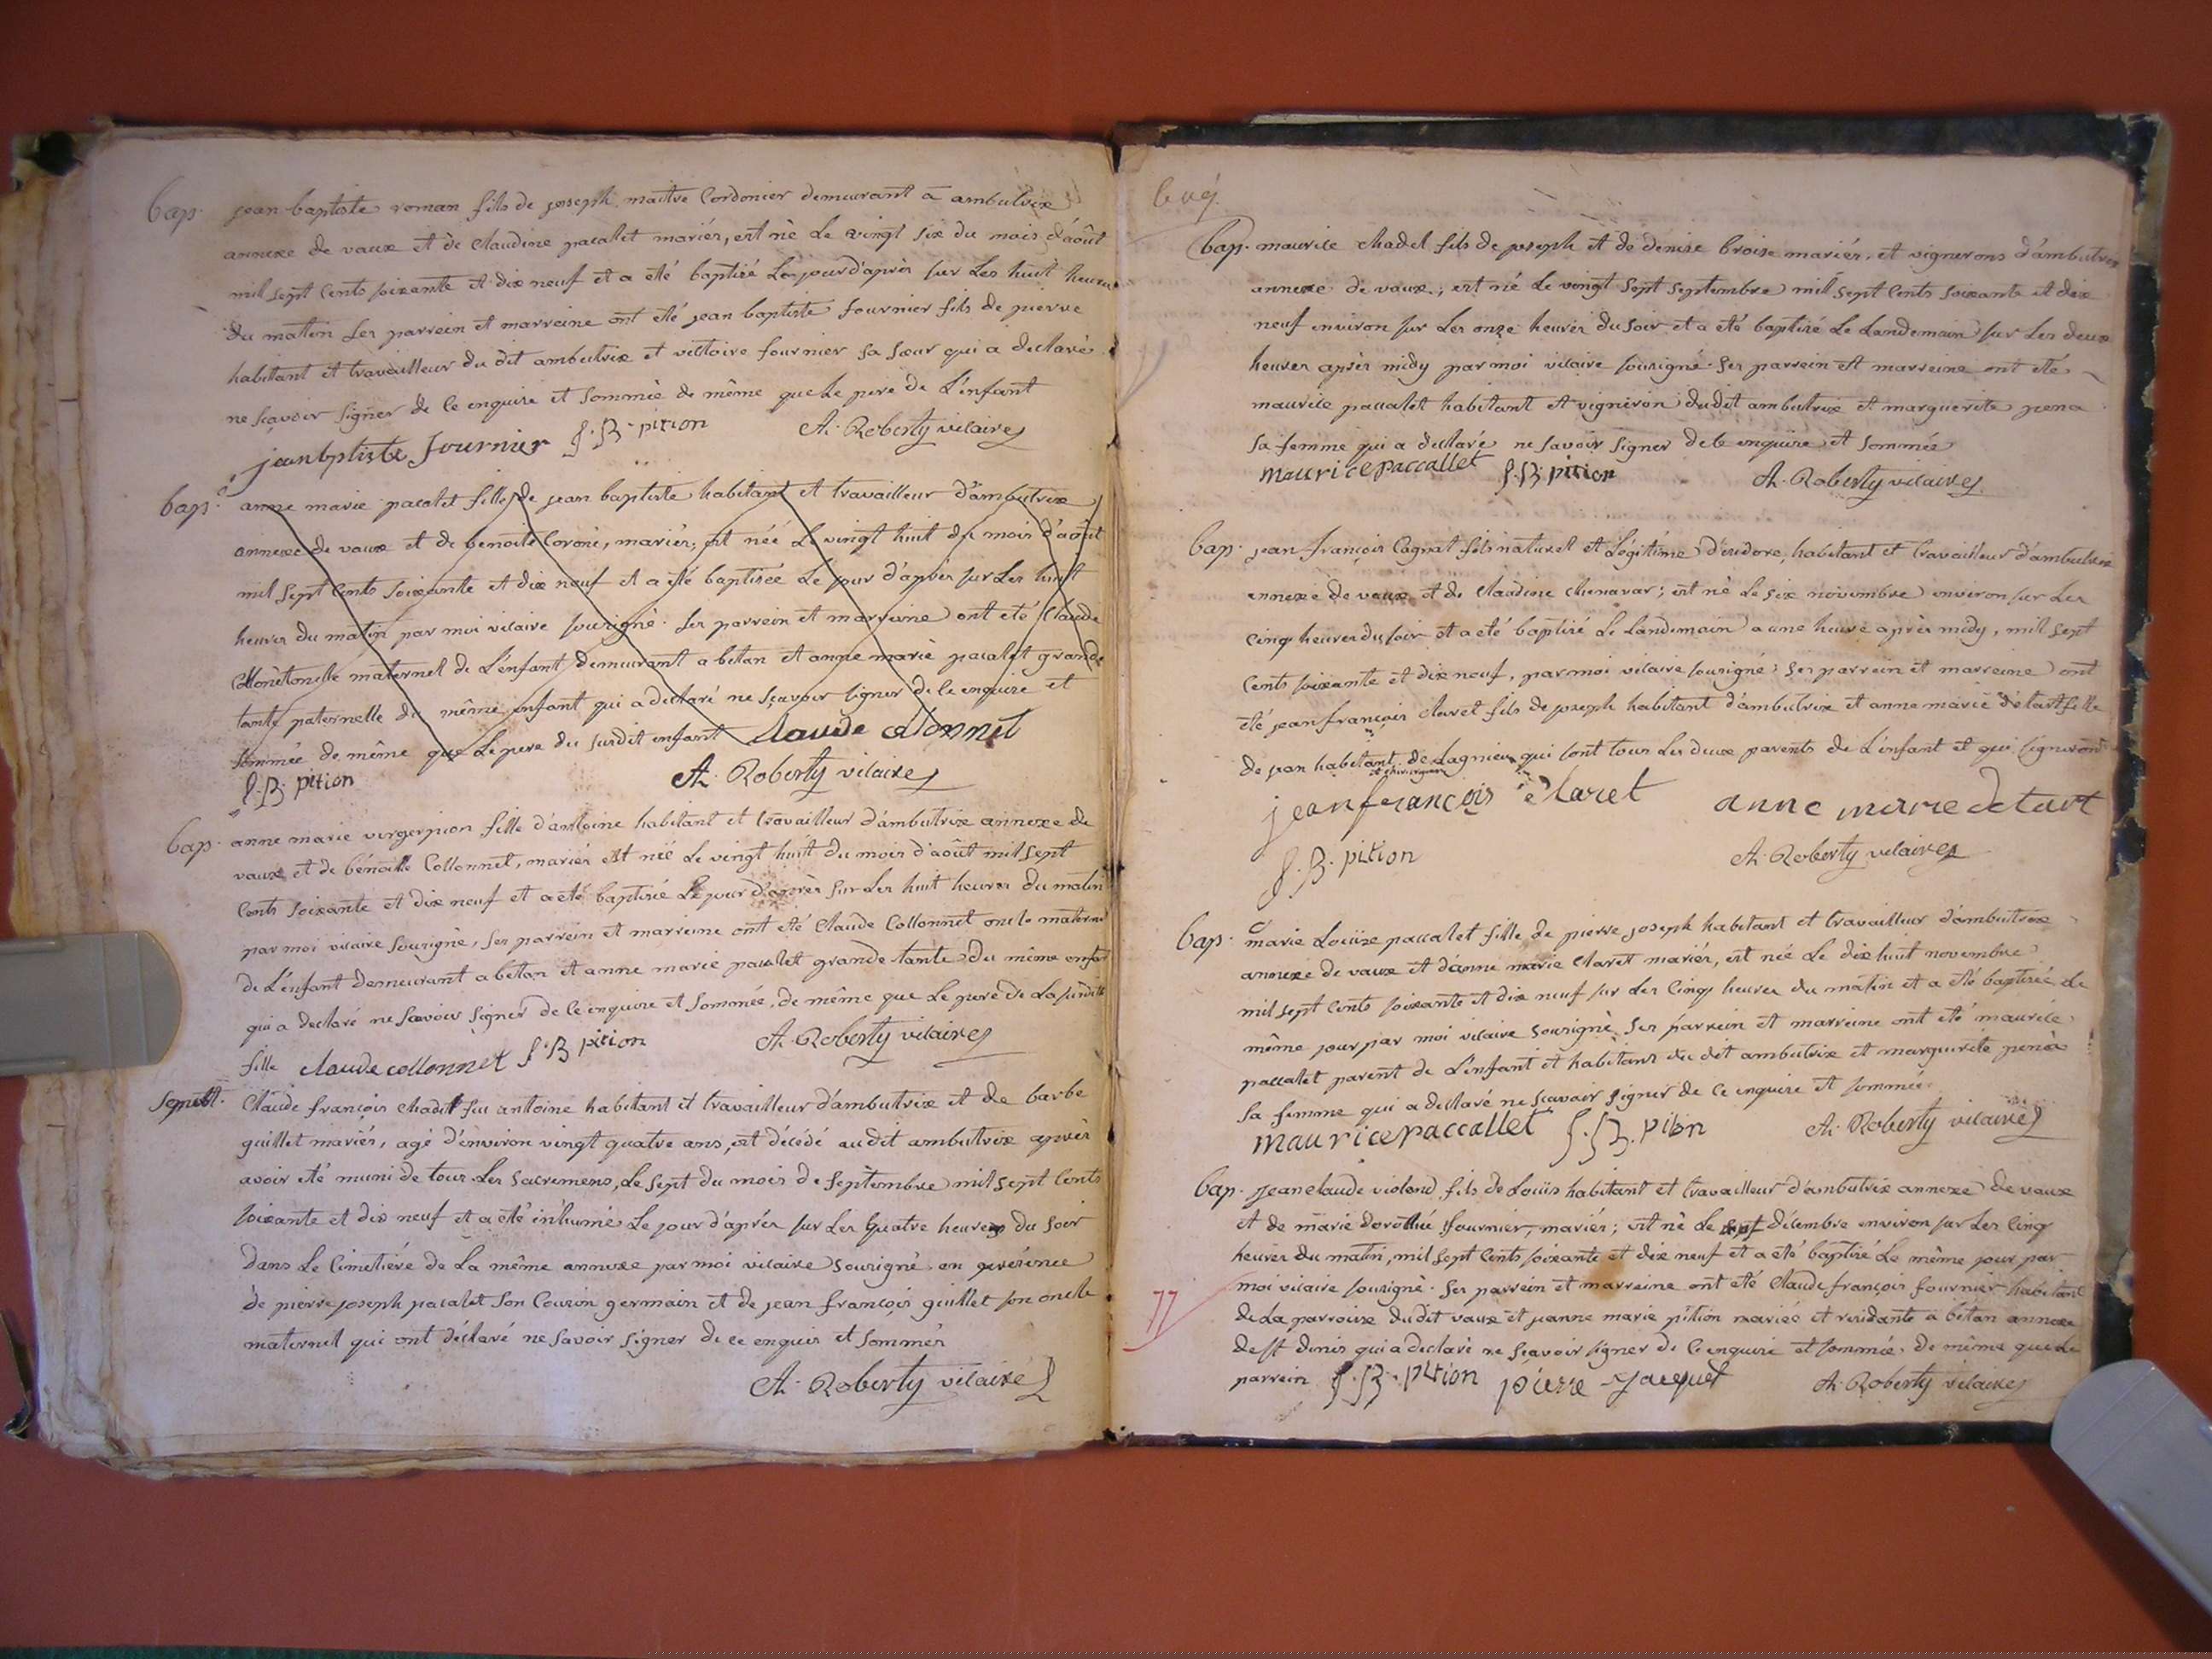 bap. jean baptiste roman fils de joseph maitre Cordonier demeurant à ambutrix
annexe de vaux et de Claudine pacallet mariés, est né Le vingt six du mois d'août
mil sept Cents soixante et dix neuf et a eté baptisé Le jour d'après sur Les huit heures
du matin Ses parrein et marreine ont eté jean baptiste fournier fils de pierre
habitant et travailleur du dit ambutrix et victoire fournier sa sœur qui a declaré
ne sçavoir signer de Ce enquise et sommée de même que Le pere de L'enfant
jeanbptiste fournier J. B. pition A. Roberty vicaire
bap. anne marie pacalet fille de jean baptiste habitant et travailleur d'ambutrix
annexe de vaux et de benoite Coroné, mariés, est née Le vingt huit du mois d'août
mil sept Cents soixante et dix neuf et a eté baptisée Le jour d'après sur Les huit
heures du matin par moi vicaire sousigné. Ses parrein et marreine ont eté Claude
maternel de L'enfant demeurant a betan et anne marie pacalet grande
tante paternelle du même enfant qui a declaré ne sçavoir signer de Ce enquise et
sommée de même que Le pere du susdit enfant Claude Collonnet
J. B. pition A. Roberty vicaire
bap. anne marie vergerpion fille d'antoine habitant et travailleur d'ambutrix annexe de
vaux et de bénoitte Collonnet, mariés est née Le vingt huit du mois d'août mil sept
Cents soixante et dix neuf et a eté baptisée Le jour d'après sur Les huit heures du matin
par moi vicaire sousigné, Ses parrein et marreine ont eté Claude Collonnet oncle maternel
de L'enfant demeurant a betan et anne marie pacalet grande tante du même enfant
qui a declaré ne sçavoir signer de Ce enquise et sommée, de même que Le pere de La susditte
fille claude collonnet J. B. pition A. Roberty vicaire
Sepult. Claude françois Chadel feu antoine habitant et travailleur d'ambutrix et de barbe
guillet mariés, agé d'environ vingt quatre ans, est décédé audit ambutrix après
avoir eté muni de tous Les sacremens, Le sept du mois de septembre mil sept Cents
soixante et dix neuf et a eté inhumé Le jour d'après sur Les quatre heures du soir
dans Le Cimetiére de La même annexe par moi vicaire sousigné en presénce
de pierre joseph pacalet son Cousin germain et de jean françois guillet son oncle
maternel qui ont déclaré ne savoir signer de ce enquis et sommés
A. Roberty vicaire
bap. maurice chadel fils de joseph et de denise broise mariés, et vignerons d'ambutrix
annexe de vaux; est né Le vingt sept septembre mil sept Cents soixante et dix
neuf environ sur Les onze heures du soir et a eté baptisé Le Landemain sur Les deux
heures après midy par moi vicaire sousigné. Ses parrein et marreine ont eté
maurice paccalet habitant et vigneron dudit ambutrix et marguerite pena
sa femme qui a declaré ne savoir signer de Ce enquise et sommée
maurice paccallet J. B. pition A. Roberty vicaire
bap. jean françois Cagnat fils naturel et Légitime d'isidore, habitant et travailleur d'ambutrix
annexe de vaux et de Claudine Chenavar; est né Le six novembre environ sur Les
Cinq heures du soir et a eté baptisé Le Landemain a une heure après midy, mil sept
Cents soixante et dix neuf, par moi vicaire sousigné: Ses parrein et marreine ont
eté jean françois Claret fils de joseph habitant d'ambutrix et anne marie détart fille
de jean habitant de Lagnieu qui sont tous Les deux parents de L'enfant et qui signeront
et chirurgien
jean francois claret anne marie detart
J. B. pition A. Roberty vicaire
bap. marie Louise paccalet fille de pierre joseph habitant et travailleur d'ambutrix
annexe de vaux et d'anne marie Claret mariés, est née Le dix huit novembre
mil sept Cents soixante et dix neuf sur Les Cinq heures du matin et a eté baptisée Le
même jour par moi vicaire sousigné Ses parrein et marreine ont eté maurice
paccalet parent de L'enfant et habitant du dit ambutrix et marguerite pena
sa femme qui a declaré ne scavoir signer de Ce enquise et sommée
maurice paccallet J. B. pition A. Roberty vicaire
bap. Jean claude violand fils de Loüis habitant et travailleur d'ambutrix annexe de vaux
et de marie dorothée fournier, mariés; est né Le sept décembre environ sur Les Cinq
heures du matin, mil sept Cents soixante et dix neuf et a eté baptisé Le même jour par
moi vicaire sousigné. Ses parrein et marreine ont eté Claude françois fournier habitant
de La parroisse dudit vaux et jeanne marie pition mariée et residante a betan annexe
de st denis qui a declaré ne sçavoir signer de Ce enquise et sommée, de même que Le
parrein J. B. pition pierre Jacquet A. Roberty vicaire
77